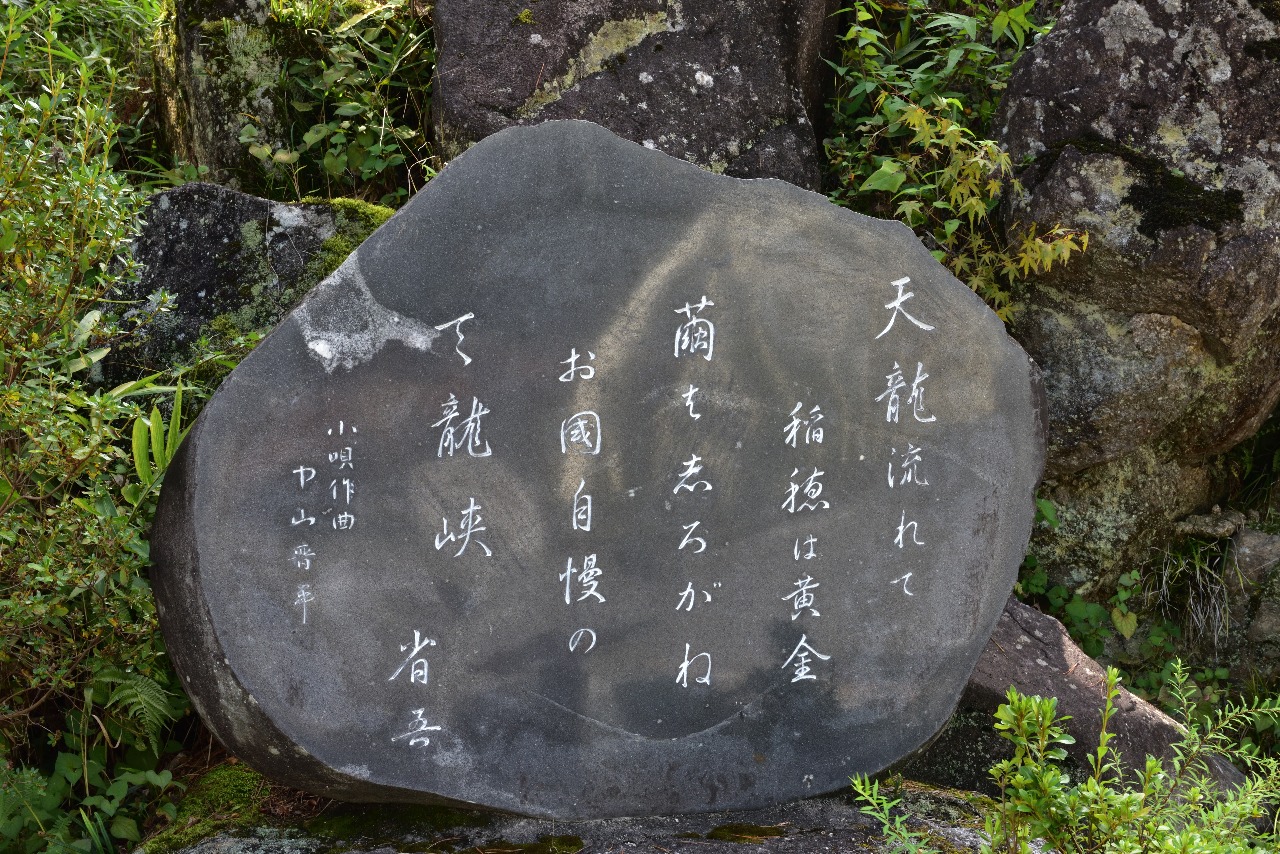 天龍流れて
稲穂は黄金
繭もしろがね
お國自慢の
天龍峡
省吾
小唄作曲
中山晋平